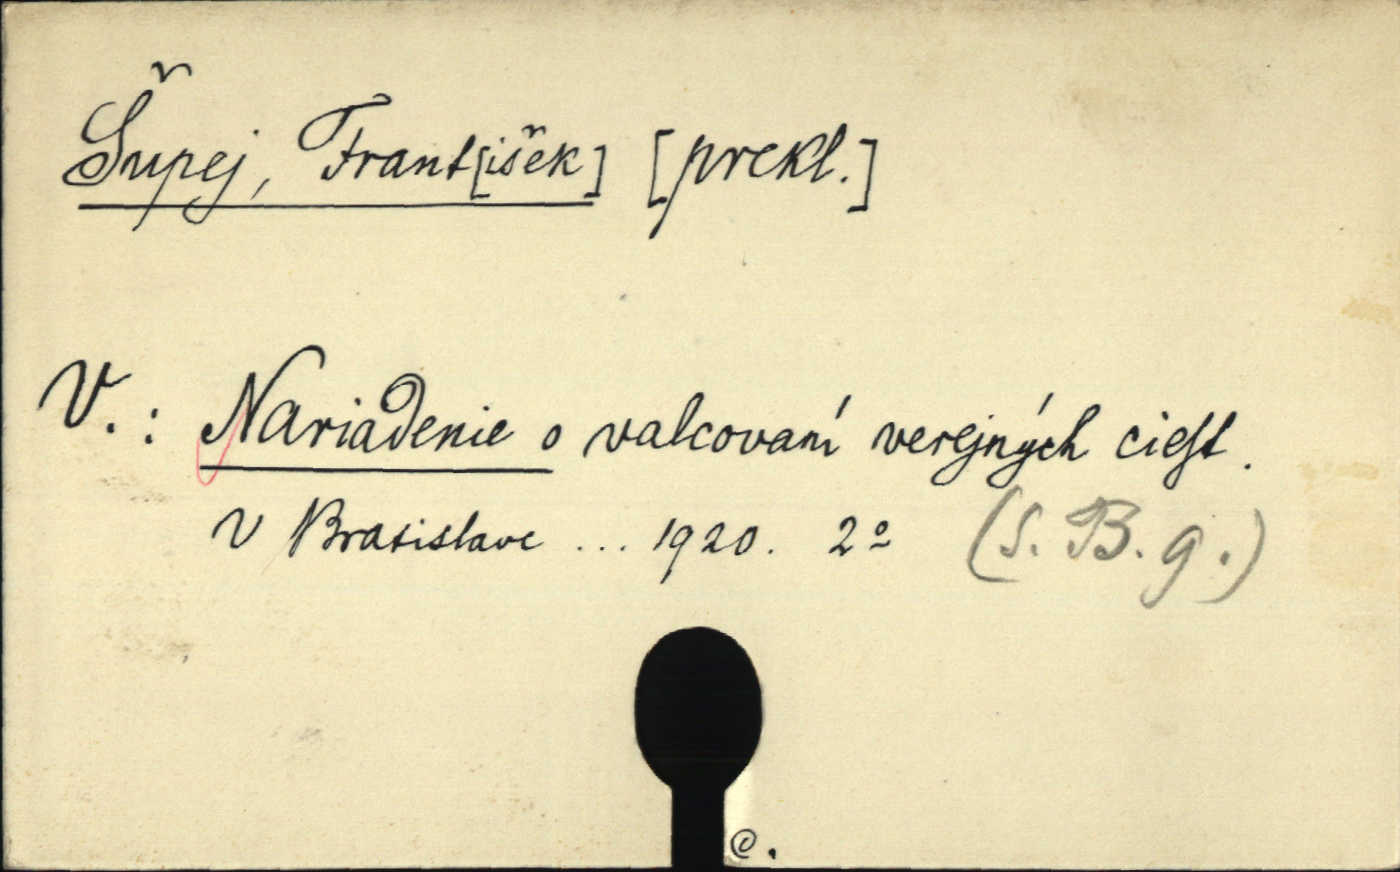 Šupej, Frant[išek] [prekl.]
V.: Nariadenie o valcovaní verejných ciest.
V Bratislave ... 1920. 2º (S. B. g.)
@.